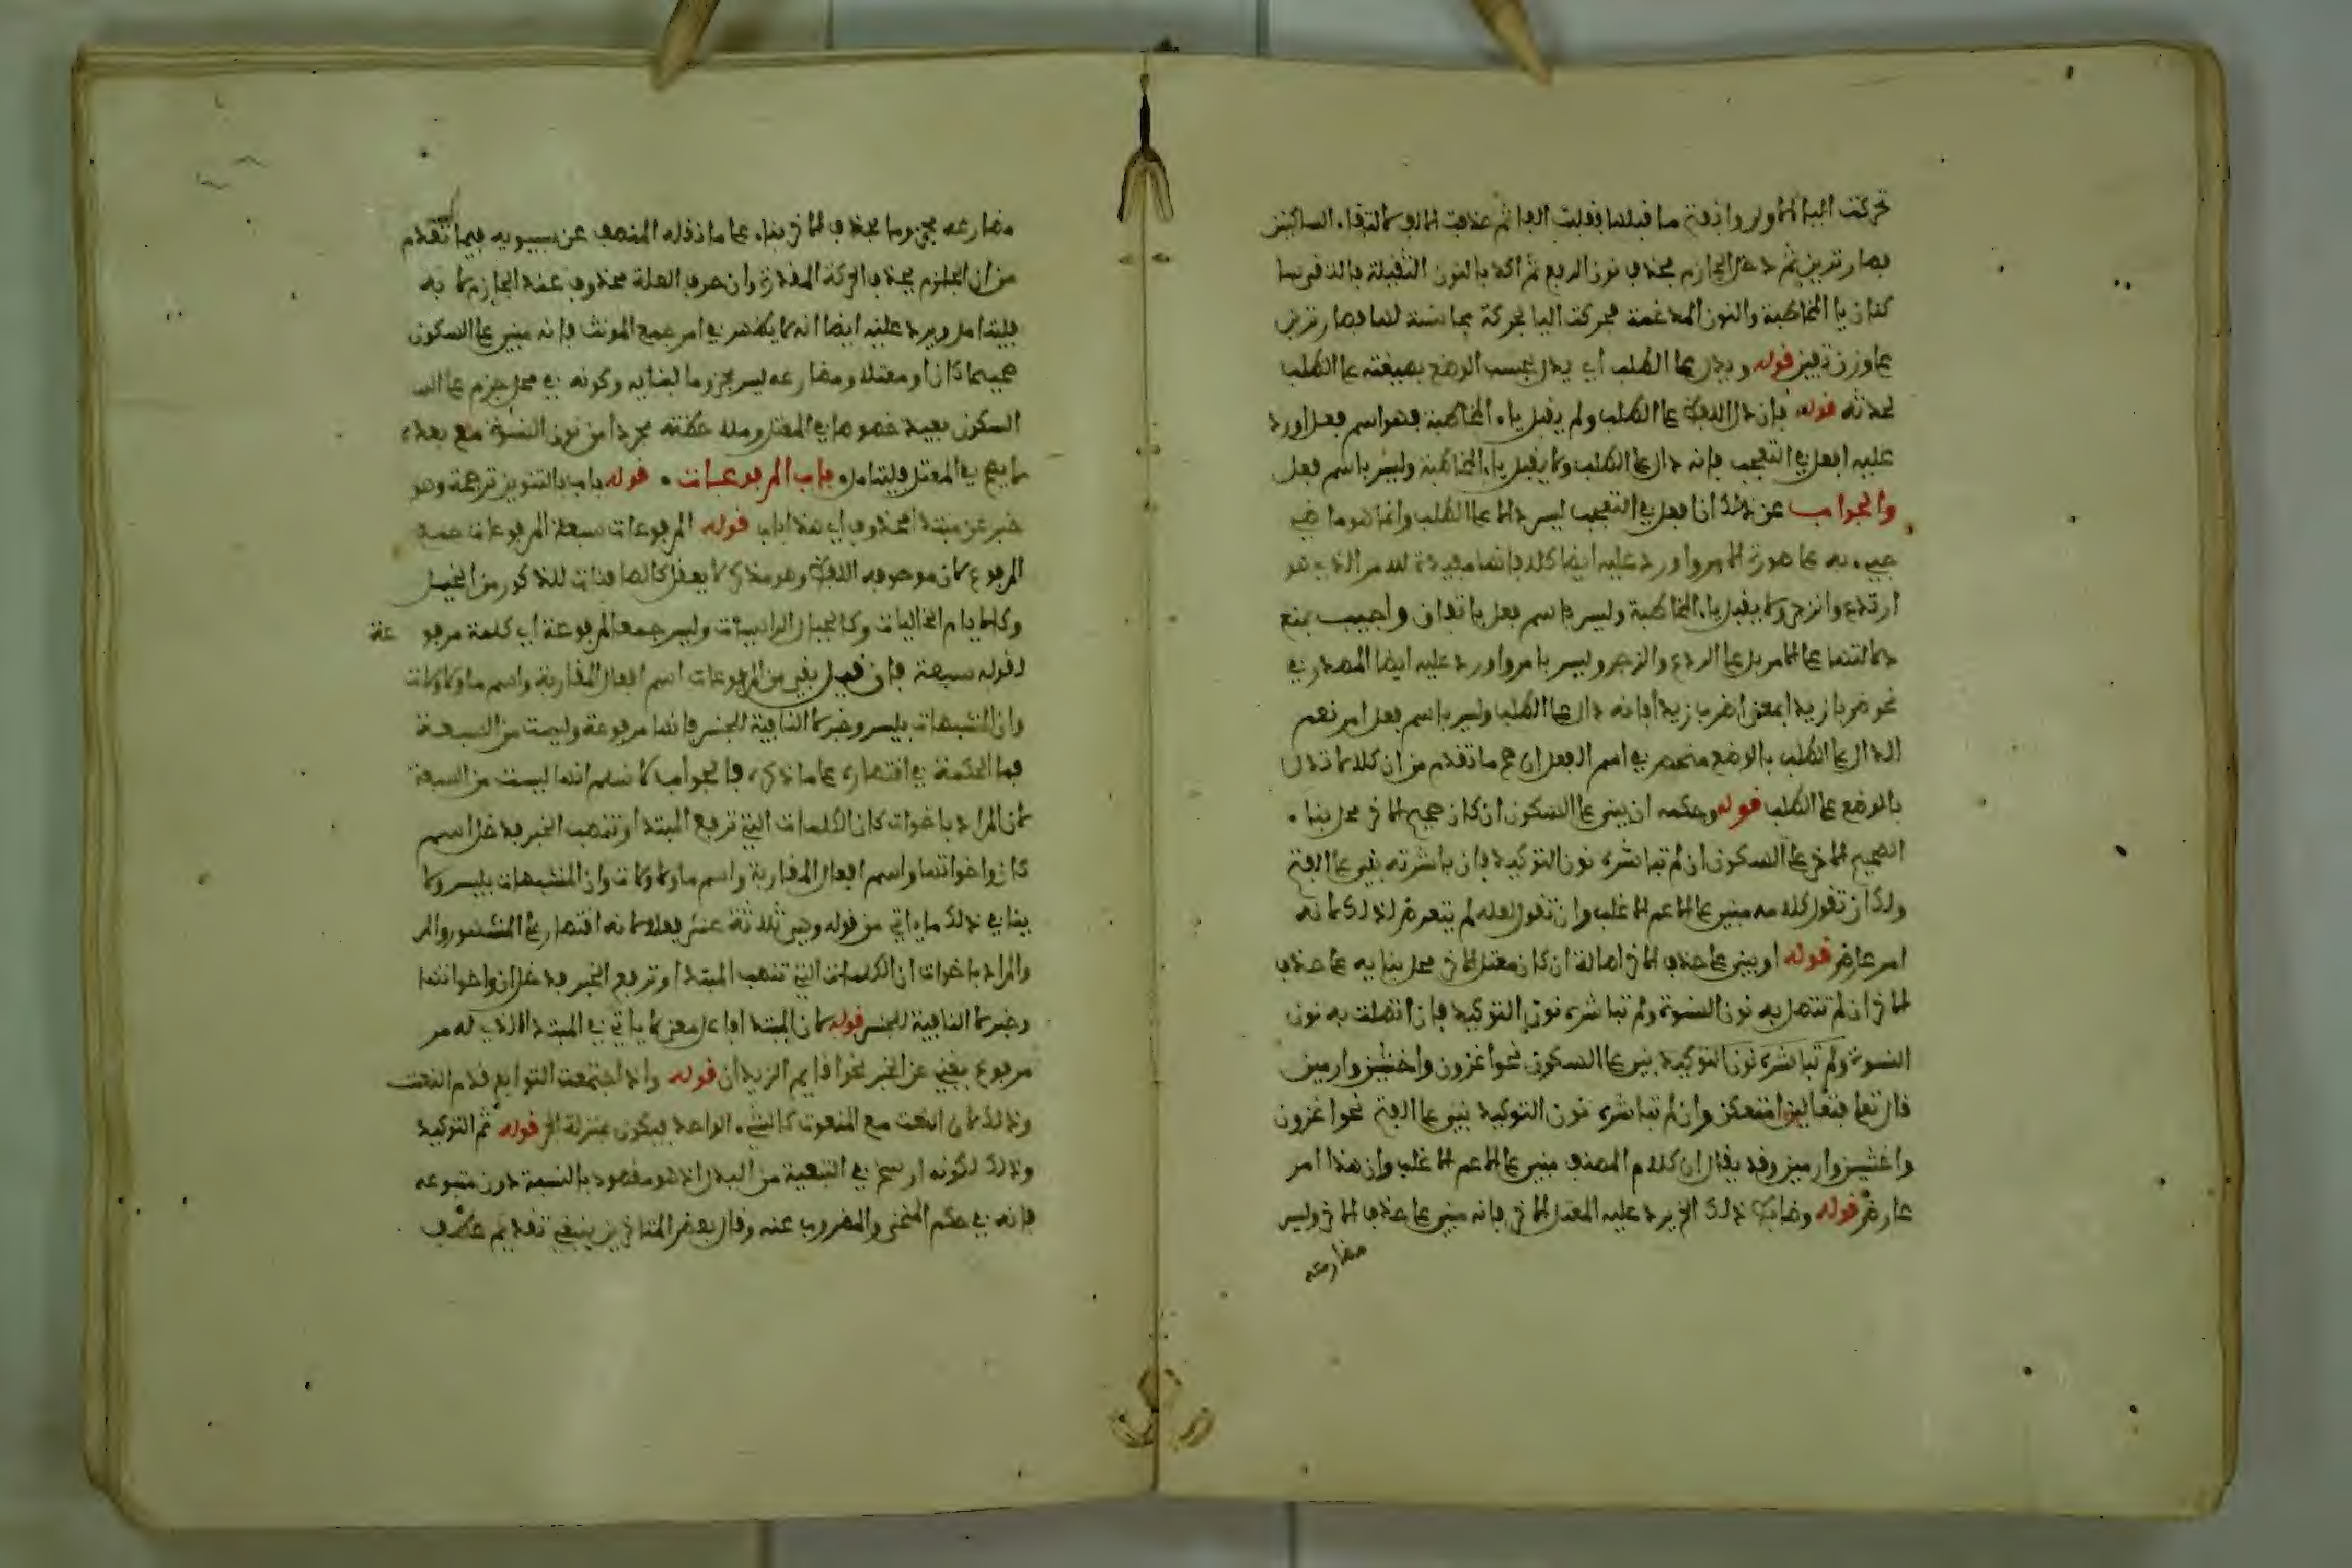 تحركت اليا الاولى وانفتح ما قبلها فقلبت الفا ثم حذفت الالف لالتقاء الساكنين
فصار ترين ثم دخل الجازم فحذف نون الرفع ثم اكد بالنون الثقيلة فالتقى ساكنان
يا المخاطبة والنون المدغمة فحركت اليا بحركة مجانسة لها فصار ترين
على وزن تفين قوله ويدل على الطلب اي يدل بحسب الوضع بصيغته على الطلب
لحدثه قوله فان دل اللفظ على الطلب ولم يقبل ياء المخاطبة فهو اسم فعل اورد
عليه افعل في التعجب فانه دال على الطلب ولا يقبل يا المخاطبة وليس باسم فعل
والجواب عن ذلك ان افعل في التعجب ليس دالا على الطلب وانما هو ماض
جيء به على صورة الامر واورد عليه ايضا كلا فانها مفيدة للامر الذي هو
ارتدع وانزجر ولا يقبل ياء المخاطبة وليس باسم فعل باتفاق واجيب بمنع
دلالتها على الامر بل على الردع والزجر وليس بامر واورد عليه ايضا المصدر في
نحو ضربا زيدا بمعنى اضرب زيدا فانه دال على الطلب وليس باسم فعل امر نعم
الدال على الطلب بالوضع منحصر في اسم الفعل ان صح ما تقدم من ان كلا لا تدل
بالوضع على الطلب قوله وحكمه ان يبنى على السكون ان كان صحيح الاخر محل بناء
الصحيح الاخر على السكون ان لم تباشره نون التوكيد فان باشرته بني على الفتح
ولك ان تقول كلامه مبني على الاعم الاغلب وان تقول لعله لم يتعرض لذلك لانه
امر عارض قوله او يبنى على حذف الاخر اصالة ان كان معتل الاخر محل بنايه على حذف
الاخر ان لم تتصل به نون النسوة ولم تباشره نون التوكيد فان اتصلت به نون
النسوة ولم تباشره نون التوكيد بني على السكون نحو اغزون واخشين وارمين
قال تعالى فتعالين امتعكن وان لم تباشره نون التوكيد بني على الفتح نحو اغزون
واخشين وارمين وقد يقال ان كلام المصنف مبني على الاعم الاغلب وان هذا امر
عارض قوله وضابط ذلك الخ يرد عليه المعتل الاخر فانه مبني على حذف الاخر وليس
مضارعه
مضارعه مجزوما بحذف الاخر بناء على ما نقله المصنف عن سيبويه فيما تقدم
من ان الجازم يحذف الحركة المقدرة وان حرف العلة محذوف عند الجازم لا به
فليتامل ويرد عليه ايضا انه لا يظهر في امر جمع المونث فانه مبني على السكون
صحيحا كان او معتلا ومضارعه ليس مجزوما لبنايه وكونه في محل جزم على
السكون بعيد خصوصا في المضارع مجردا من نون النسوة مع بعده
لا يصح في المعتل فليتامل باب المرفوعات قوله باب بالتنوين ترجمة وهو
خبر عن مبتدا محذوف اي هذا باب قوله المرفوعات سبعة المرفوعات جمع
المرفوع لان موصوفه اللفظ وهو مذكر لا يعقل كالصافنات للذكور من الخيل
وكالايام الخاليات وكالجبال الراسيات وليس جمعا لمرفوعة اي كلمة مرفوعة
لقوله سبعة فان قيل بقي من المرفوعات اسم افعال المقاربة واسم ما ولا ولات
وان المشبهات بليس وخبر لا النافية للجنس فانها مرفوعة وليست من السبعة
فما الحكمة في اقتصاره على ما ذكره فالجواب لا نسلم انها ليست من السبعة
لان المراد باخوات كان الكلمات التي ترفع المبتدا وتنصب الخبر فدخل اسم
كان واخواتها واسم افعال المقاربة واسم ما ولا ولات وان المشبهات بليس ولا
ينافي ذلك ما ياتي من قوله وهي ثلاثة عشر فعلا لانه اقتصار على المشهور
والمراد باخوات ان الكلمات التي تنصب المبتدا وترفع الخبر فدخل ان واخواتها
وخبر لا النافية للجنس قوله لان المبتدا فاعل معنى لا ياتي في المبتدا الذي له
مرفوع يغني عن الخبر نحو اقايم الزيدان قوله واذا اجتمعت التوابع قدم النعت
وذلك لان النعت مع المنعوت كالشيء الواحد فيكون بمنزلة الخ قوله ثم التوكيد
وذلك لكونه ارسخ في التبعية من البدل اذ هو مقصود بالنسبة دون متبوعه
فانه في حكم المنحى والمضروب عنه وقال بعض المتاخرين ينبغي تقديم عطف